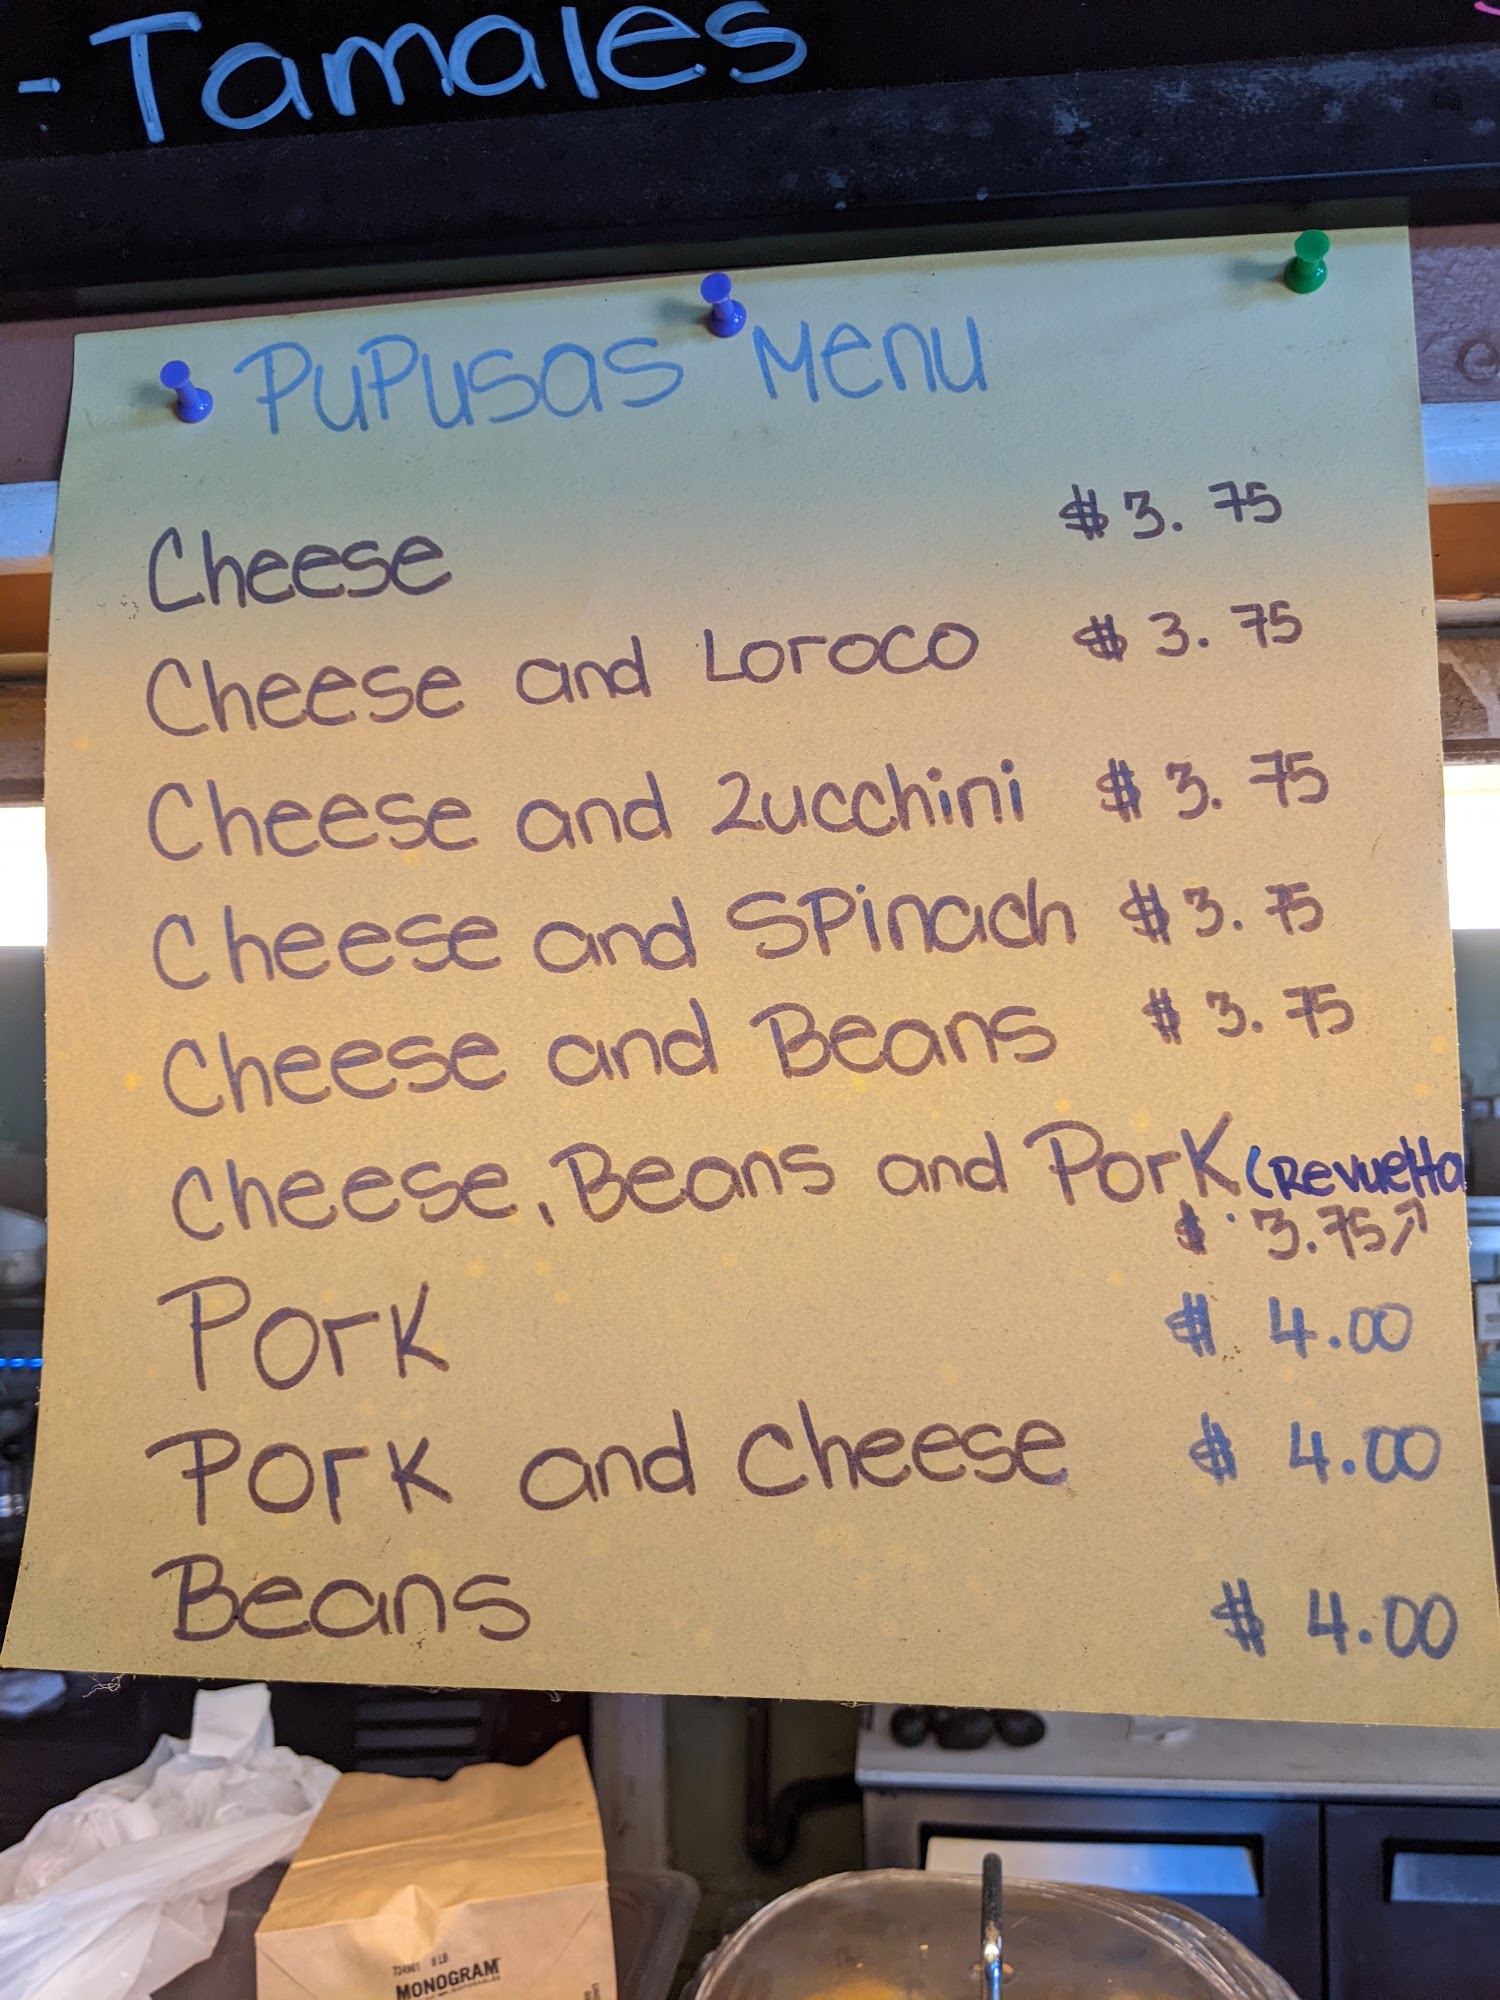 - Tamales
PuPusas Menu
Cheese $3.75
Cheese and Loroco $3.75
Cheese and Zucchini $3.75
Cheese and SPinach $3.75
Cheese and Beans $3.75
Cheese, Beans and Pork (Revuelta
$ 3.75↗
Pork $ 4.00
Pork and cheese $ 4.00
Beans $ 4.00
724961 8 LB
MONOGRAM